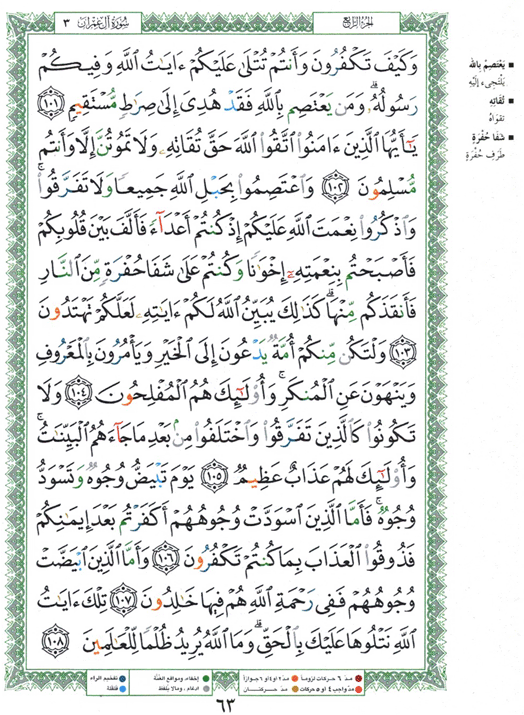 سُورَةُ آلِ عِمْرَان ٣
الجزء الرابع
وَكَيْفَ تَكْفُرُونَ وَأَنتُمْ تُتْلَىٰ عَلَيْكُمْ ءَايَٰتُ ٱللَّهِ وَفِيكُمْ
رَسُولُهُۥ ۗ وَمَن يَعْتَصِم بِٱللَّهِ فَقَدْ هُدِىَ إِلَىٰ صِرَٰطٍ مُّسْتَقِيمٍ ١٠١
يَٰٓأَيُّهَا ٱلَّذِينَ ءَامَنُوا۟ ٱتَّقُوا۟ ٱللَّهَ حَقَّ تُقَاتِهِۦ وَلَا تَمُوتُنَّ إِلَّا وَأَنتُم
مُّسْلِمُونَ ١٠٢ وَٱعْتَصِمُوا۟ بِحَبْلِ ٱللَّهِ جَمِيعًا وَلَا تَفَرَّقُوا۟ ۚ
وَٱذْكُرُوا۟ نِعْمَتَ ٱللَّهِ عَلَيْكُمْ إِذْ كُنتُمْ أَعْدَآءً فَأَلَّفَ بَيْنَ قُلُوبِكُمْ
فَأَصْبَحْتُم بِنِعْمَتِهِۦٓ إِخْوَٰنًا وَكُنتُمْ عَلَىٰ شَفَا حُفْرَةٍ مِّنَ ٱلنَّارِ
فَأَنقَذَكُم مِّنْهَا ۗ كَذَٰلِكَ يُبَيِّنُ ٱللَّهُ لَكُمْ ءَايَٰتِهِۦ لَعَلَّكُمْ تَهْتَدُونَ
١٠٣ وَلْتَكُن مِّنكُمْ أُمَّةٌ يَدْعُونَ إِلَى ٱلْخَيْرِ وَيَأْمُرُونَ بِٱلْمَعْرُوفِ
وَيَنْهَوْنَ عَنِ ٱلْمُنكَرِ ۚ وَأُو۟لَٰٓئِكَ هُمُ ٱلْمُفْلِحُونَ ١٠٤ وَلَا
تَكُونُوا۟ كَٱلَّذِينَ تَفَرَّقُوا۟ وَٱخْتَلَفُوا۟ مِنۢ بَعْدِ مَا جَآءَهُمُ ٱلْبَيِّنَٰتُ ۚ
وَأُو۟لَٰٓئِكَ لَهُمْ عَذَابٌ عَظِيمٌ ١٠٥ يَوْمَ تَبْيَضُّ وُجُوهٌ وَتَسْوَدُّ
وُجُوهٌ ۚ فَأَمَّا ٱلَّذِينَ ٱسْوَدَّتْ وُجُوهُهُمْ أَكَفَرْتُم بَعْدَ إِيمَٰنِكُمْ
فَذُوقُوا۟ ٱلْعَذَابَ بِمَا كُنتُمْ تَكْفُرُونَ ١٠٦ وَأَمَّا ٱلَّذِينَ ٱبْيَضَّتْ
وُجُوهُهُمْ فَفِى رَحْمَةِ ٱللَّهِ هُمْ فِيهَا خَٰلِدُونَ ١٠٧ تِلْكَ ءَايَٰتُ
ٱللَّهِ نَتْلُوهَا عَلَيْكَ بِٱلْحَقِّ ۗ وَمَا ٱللَّهُ يُرِيدُ ظُلْمًا لِّلْعَٰلَمِينَ ١٠٨
■ يَعْتَصِم بالله
يَلْتَجِىءْ إلَيْهِ
■ تُقَاتِهِ
تقواهُ
■ شَفَا حُفْرَةٍ
طَرَفِ حُفْرَةٍ
مدّ ٦ حركات لزوماً
مدّ ٢ او ٤ او ٦ جوازاً
إخفاء، ومواقع الغُنَّة
تفخيم الراء
مدّ واجب ٤ او ٥ حركات
مدّ حركتان
ادغام، ومالا يلفظ
قلقلة
٦٣